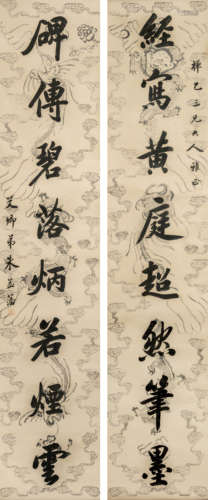 經寫黃庭超然筆墨
碑傳碧落炳若煙雲
仁兄大人雅正
艾卿弟朱益藩